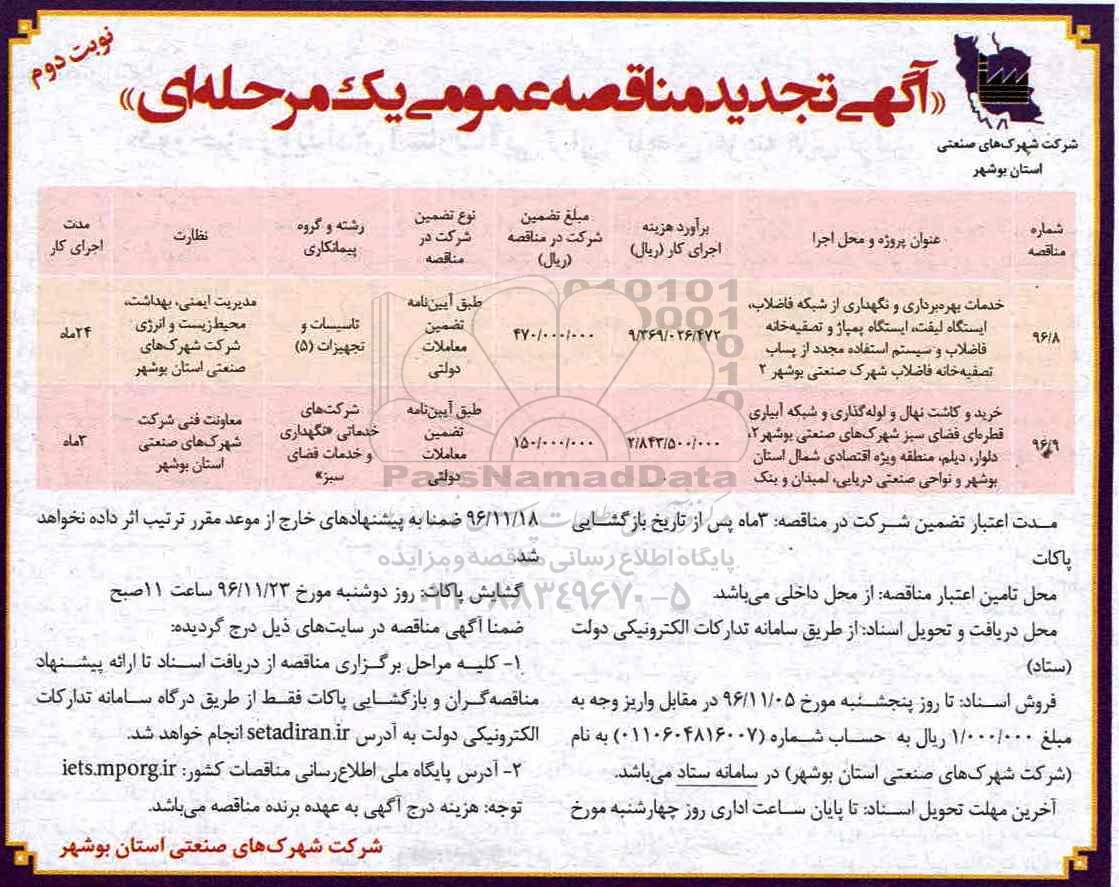 نوبت دوم
«آگهی تجدید مناقصه عمومی یک مرحله‌ای»
شرکت شهرک‌های صنعتی
استان بوشهر
شماره مناقصه
عنوان پروژه و محل اجرا
برآورد هزینه
اجرای کار (ریال)
مبلغ تضمین
شرکت در مناقصه
(ریال)
نوع تضمین
شرکت در
مناقصه
رشته و گروه
پیمانکاری
نظارت
مدت
اجرای کار
۹۶/۸
خدمات بهره‌برداری و نگهداری از شبکه فاضلاب،
ایستگاه لیفت، ایستگاه پمپاژ و تصفیه‌خانه
فاضلاب و سیستم استفاده مجدد از پساب
تصفیه‌خانه فاضلاب شهرک صنعتی بوشهر ۲
۹/۳۶۹/۰۲۶/۴۷۲
۴۷۰/۰۰۰/۰۰۰
طبق آیین‌نامه
تضمین
معاملات
دولتی
تاسیسات و
تجهیزات (۵)
مدیریت ایمنی، بهداشت،
محیط‌زیست و انرژی
شرکت شهرک‌های
صنعتی استان بوشهر
۲۴ماه
۹۶/۹
خرید و کاشت نهال و لوله‌گذاری و شبکه آبیاری
قطره‌ای فضای سبز شهرک‌های صنعتی بوشهر۲،
دلوار، دیلم، منطقه ویژه اقتصادی شمال استان
بوشهر و نواحی صنعتی دریایی، لمبدان و بنک
۲/۸۴۳/۵۰۰/۰۰۰
۱۵۰/۰۰۰/۰۰۰
طبق آیین‌نامه
تضمین
معاملات
دولتی
شرکت‌های
خدماتی «نگهداری
و خدمات فضای
سبز»
معاونت فنی شرکت
شهرک‌های صنعتی
استان بوشهر
۳ماه
مدت اعتبار تضمین شرکت در مناقصه: ۳ماه پس از تاریخ بازگشایی
پاکات
محل تامین اعتبار مناقصه: از محل داخلی می‌باشد.
محل دریافت و تحویل اسناد: از طریق سامانه تدارکات الکترونیکی دولت
(ستاد)
فروش اسناد: تا روز پنجشنبه مورخ ۹۶/۱۱/۰۵ در مقابل واریز وجه به
مبلغ ۱/۰۰۰/۰۰۰ ریال به حساب شماره (۰۱۱۰۶۰۴۸۱۶۰۰۷) به نام
(شرکت شهرک‌های صنعتی استان بوشهر) در سامانه ستاد می‌باشد.
آخرین مهلت تحویل اسناد: تا پایان ساعت اداری روز چهارشنبه مورخ
۹۶/۱۱/۱۸ ضمنا به پیشنهادهای خارج از موعد مقرر ترتیب اثر داده نخواهد
شد.
گشایش پاکات: روز دوشنبه مورخ ۹۶/۱۱/۲۳ ساعت ۱۱صبح
ضمنا آگهی مناقصه در سایت‌های ذیل درج گردیده:
۱- کلیه مراحل برگزاری مناقصه از دریافت اسناد تا ارائه پیشنهاد
مناقصه‌گران و بازگشایی پاکات فقط از طریق درگاه سامانه تدارکات
الکترونیکی دولت به آدرس setadiran.ir انجام خواهد شد.
۲- آدرس پایگاه ملی اطلاع‌رسانی مناقصات کشور: iets.mporg.ir
توجه: هزینه درج آگهی به عهده برنده مناقصه می‌باشد.
شرکت شهرک‌های صنعتی استان بوشهر
ParsNamadData
پایگاه اطلاع رسانی مناقصه و مزایده
۰۲۱-۸۸۳۴۹۶۷۰-۵